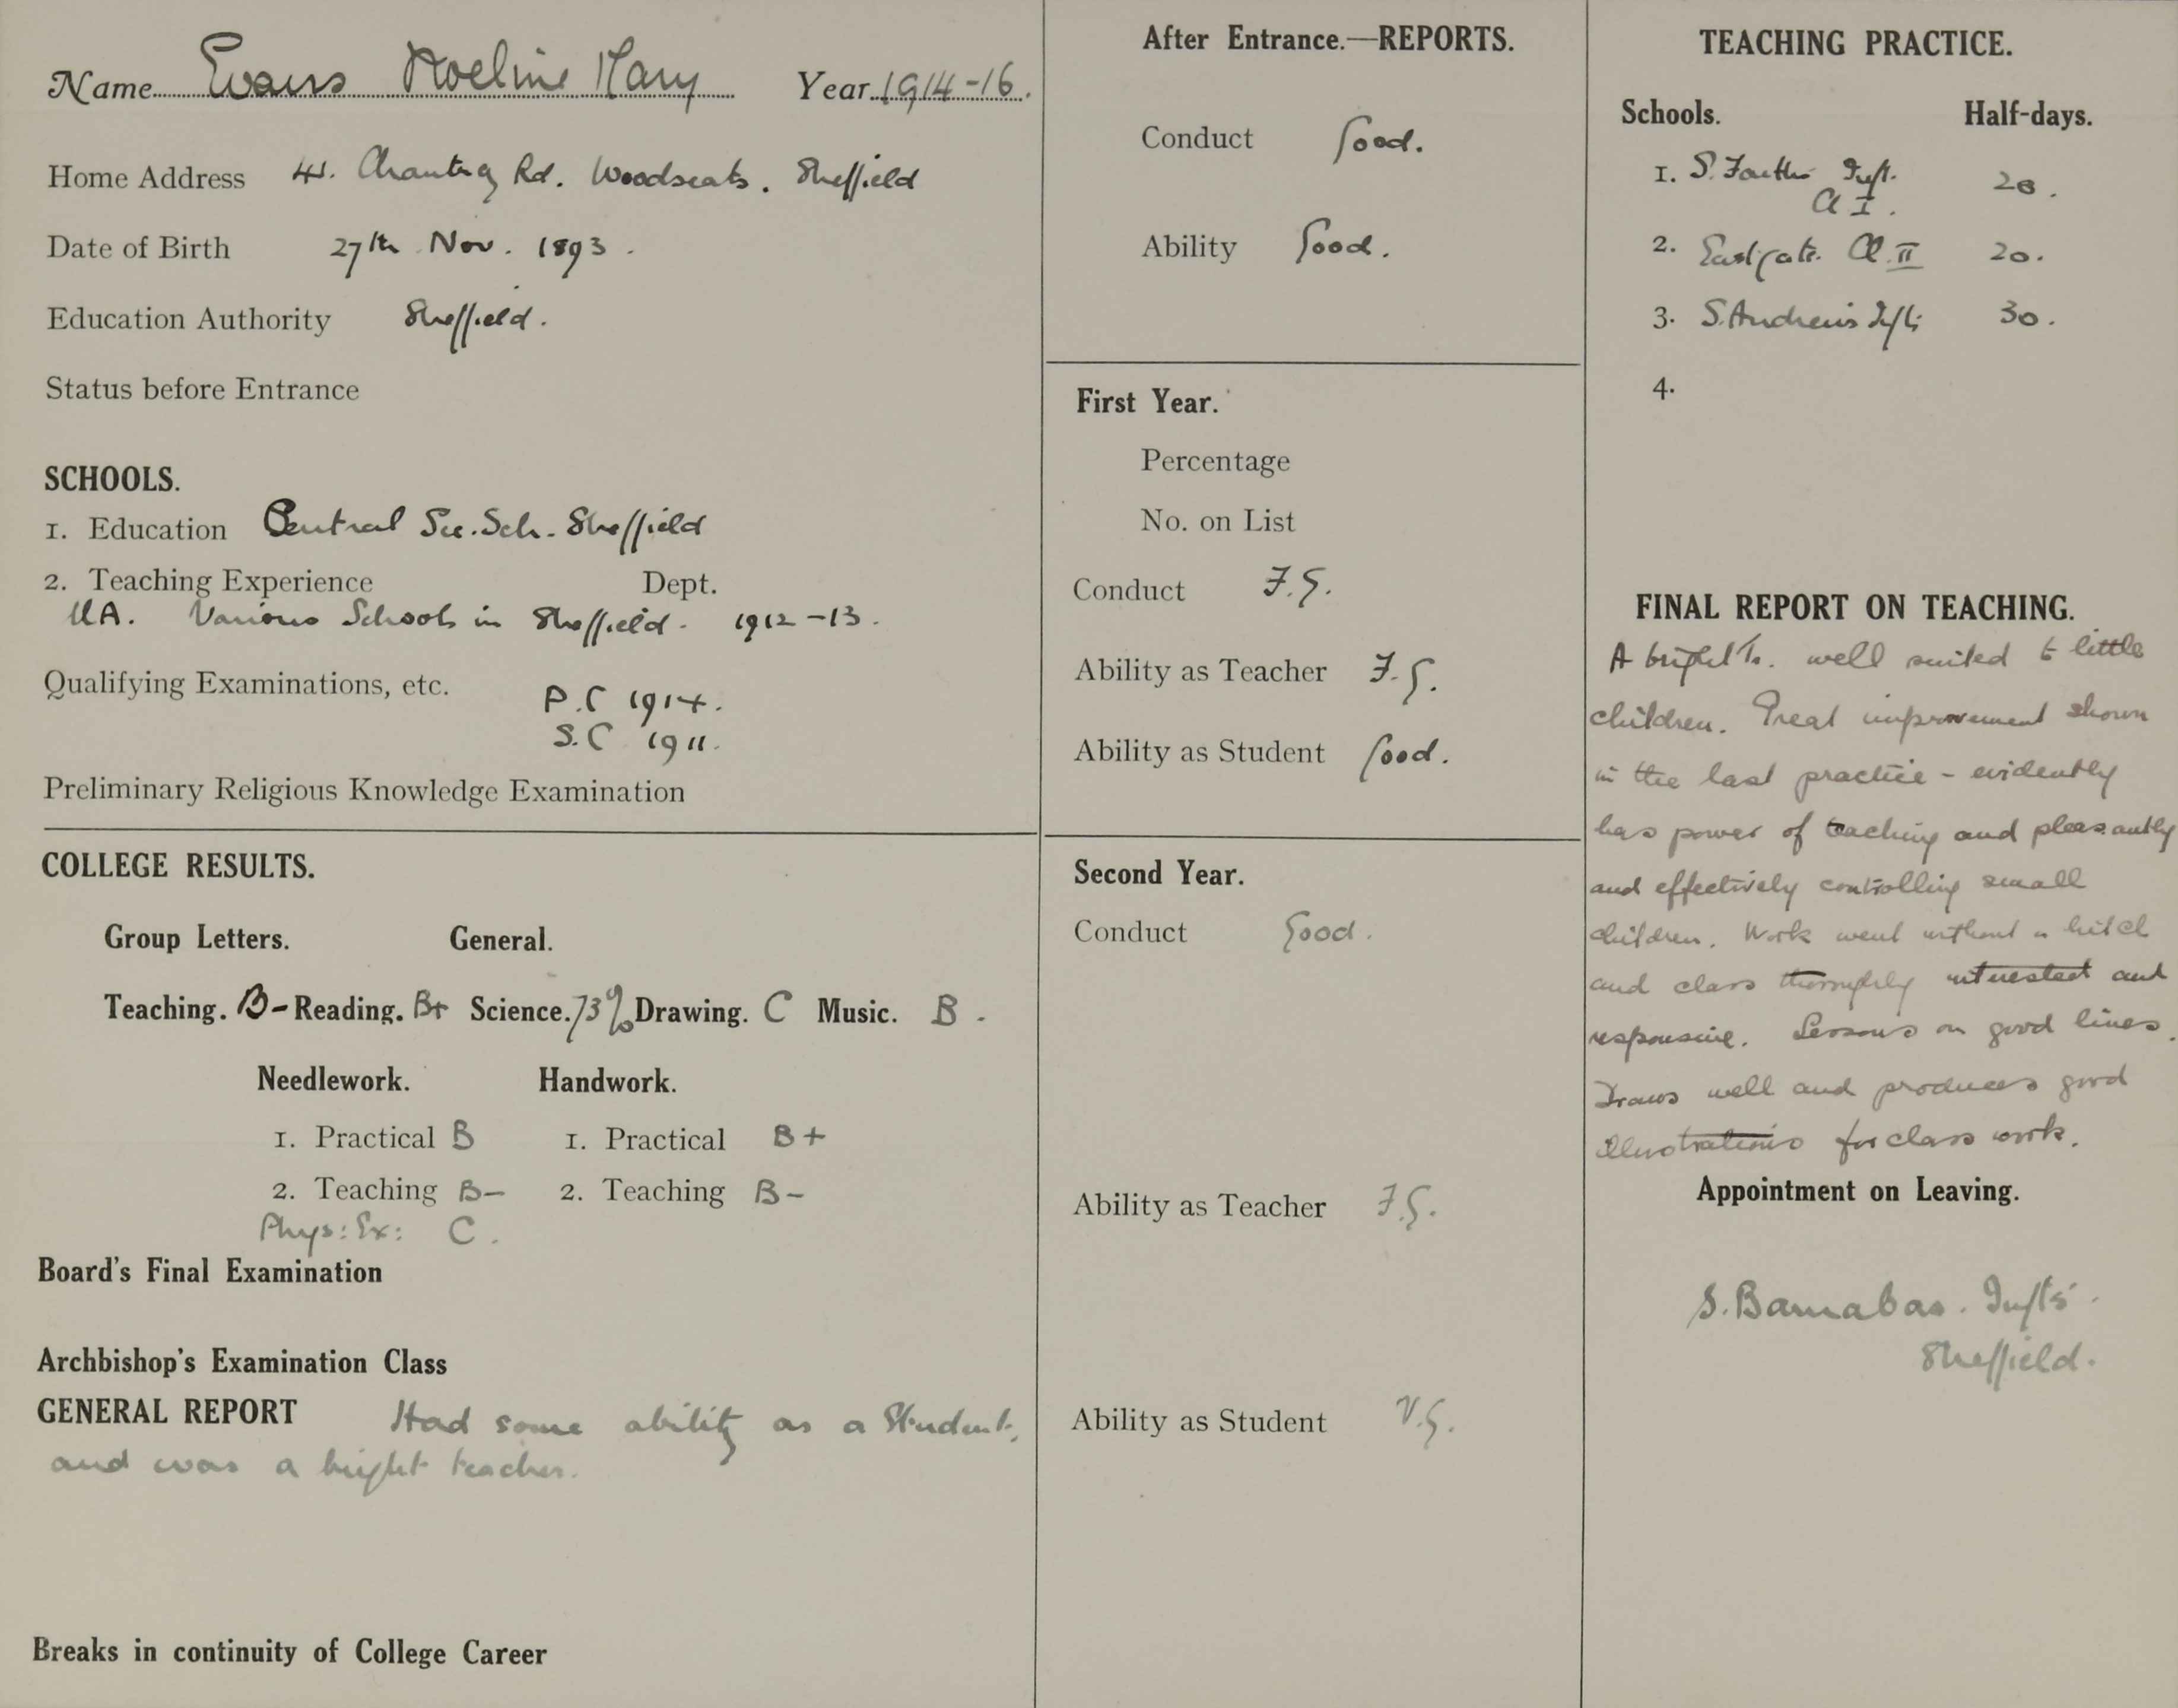 Name Evans Noeline Mary Year 1914-16.
Home Address Chantrey Rd. Woodseats. Sheffield
Date of Birth 27th Nov. 1893.
Education Authority Sheffield.
Status before Entrance
SCHOOLS.
1. Education Central Sec. Sch. Sheffield
2. Teaching Experience Dept.
U.A. Various Schools in Sheffield. 1912-13.
Qualifying Examinations, etc. P.C 1914.
S.C 1911.
Preliminary Religious Knowledge Examination
COLLEGE RESULTS.
Group Letters. General.
Teaching. B- Reading. B+ Science. 73% Drawing. C Music. B.
Needlework. Handwork.
1. Practical B 1. Practical B+
2. Teaching B- 2. Teaching B-
Phys: Ex: C.
Board's Final Examination
Archbishop's Examination Class
GENERAL REPORT Had some ability as a Student,
and was a bright teacher.
Breaks in continuity of College Career
After Entrance.—REPORTS.
Conduct Good.
Ability Good.
First Year.
Percentage
No. on List
Conduct F.G.
Ability as Teacher F.G.
Ability as Student Good.
Second Year.
Conduct Good.
Ability as Teacher F.G.
Ability as Student V.G.
TEACHING PRACTICE.
Schools. Half-days.
1. S. Faith's Inft. 20.
Cl I.
2. Eastgate. Cl. II 20.
3. S. Andrew's Infts 30.
4.
FINAL REPORT ON TEACHING.
A bright Tr. well suited to little
children. Great improvement shown
in the last practice - evidently
has power of teaching and pleasantly
and effectively controlling small
children. Work went without a hitch
and class thoroughly interested and
responsive. Lessons on good lines.
Draws well and produces good
illustrations for class work.
Appointment on Leaving.
S. Barnabas. Infts.
Sheffield.